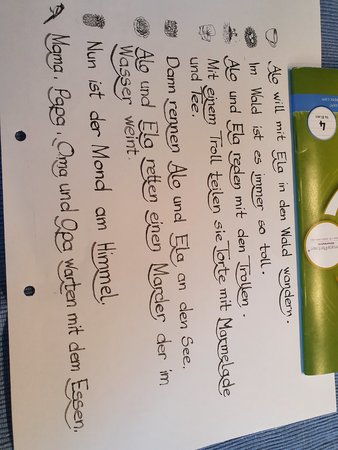 Alo will mit Ela in den Wald wandern.
Im Wald ist es immer so toll.
Alo und Ela reden mit den Trollen.
Mit einem Troll teilen sie Torte mit Marmelade
und Tee.
Dann rennen Alo und Ela an den See.
Alo und Ela retten einen Marder der im
Wasser weint.
Nun ist der Mond am Himmel.
Mama, Papa, Oma und Opa warten mit dem Essen.
4